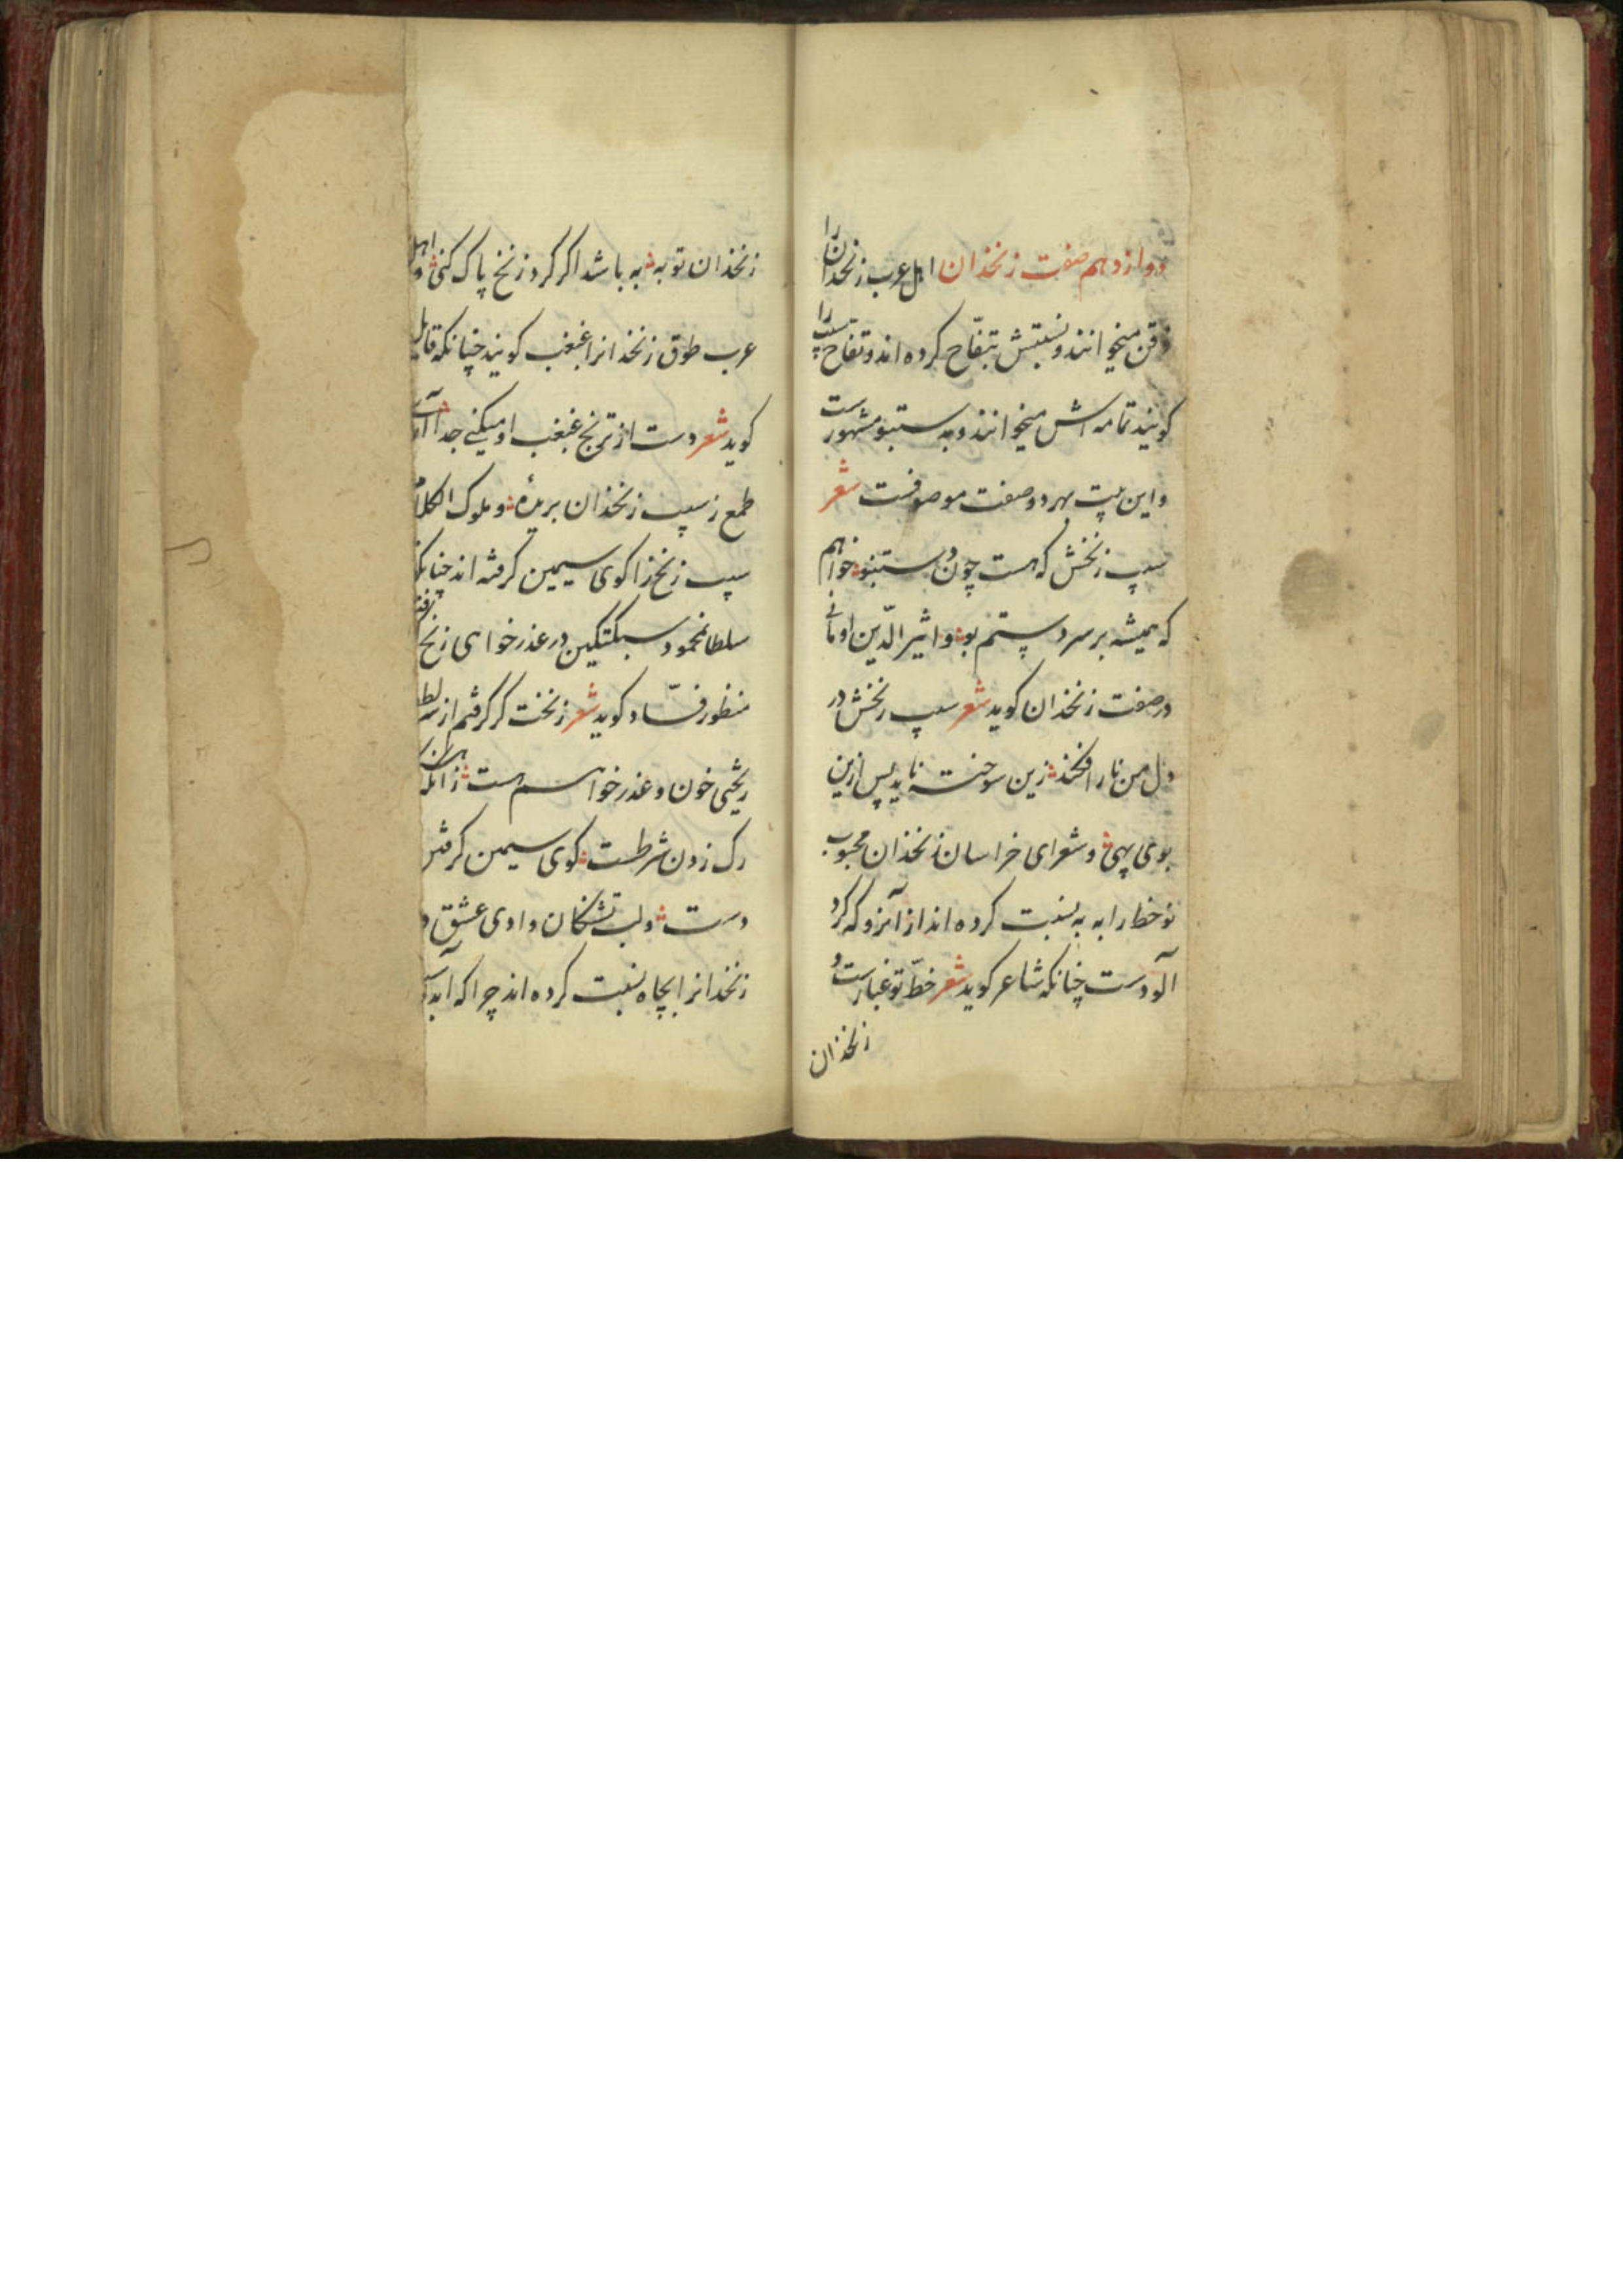 دوازدهم صفت زنخذان اهل عرب زنخدان را
ذقن میخوانند و نسبتش بتفّاح کرده اند و تفاح سیب را
کویند تمامه اش میخوانند و به ستنبو مشهورست
و این بیت بهر دو صفت موصوفست شعر
سیب زنخش که هست چون دستنبو خواهم
که همیشه بر سر دستم بو و اثیر الدّین اومانی
در صفت زنخذان کوید شعر سیب زنخش در
دل من نار افکند زین سوخته ناید پس ازین
بوی بهی و شعرای خراسان زنخذان محبوب
نوخط را به به نسبت کرده اند از آنرو که کرد
آلودست چنانکه شاعر کوید شعر خطّ تو غبارست و
زنخذان
زنخذان تو به به باشد اکر کرد زنخ پاک کنی و اهل
عرب طوق زنخدانرا غبغب کویند چنانکه قایل
کوید شعر دست از ترنج غبغب او میکنی جدا
طمع ز سیب زنخذان بریدهٔ و ملوک الکلام
سیب زنخ را کوی سیمین کرفته اند چنانکه
سلطانمحمود سبکتکین در عذرخواهی زنخ
منظور فسّاد کوید شعر زنخت کر کرفتم از سر لطف
ریختی خون و عذر خواهم هست زانکه
رک زدن شرطست کوی سیمین کرفتن
دست و لب تشنکان وادی عشق
زنخدانرا بچاه نسبت کرده اند چرا که